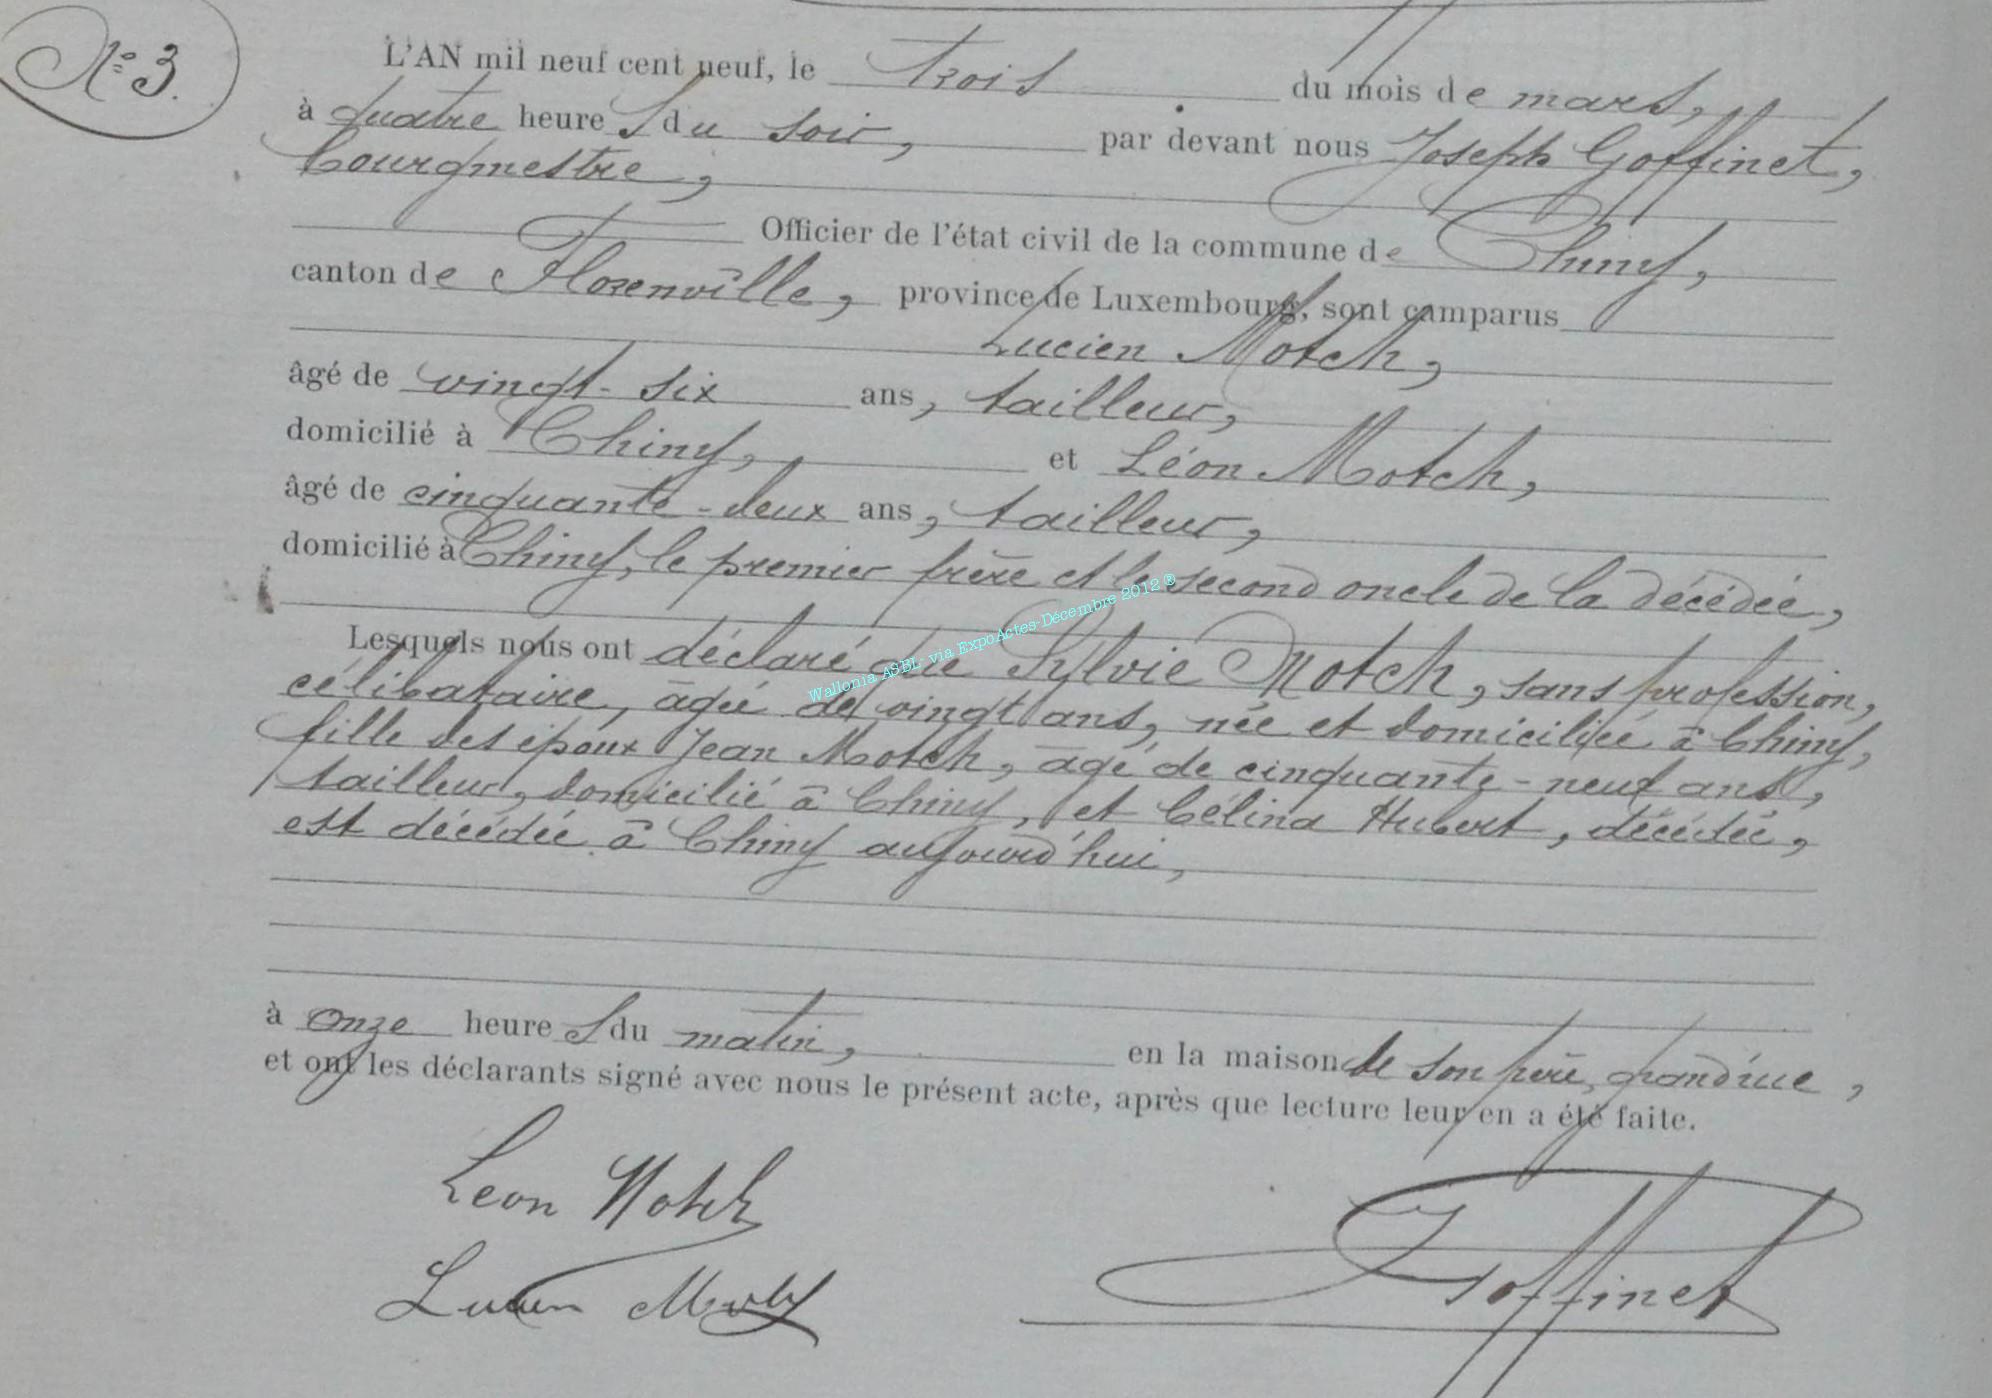 N° 3.
L'AN mil neuf cent neuf, le trois du mois de mars,
à quatre heures du soir, par devant nous Joseph Goffinet,
bourgmestre,
Officier de l'état civil de la commune de Chiny,
canton de Florenville, province de Luxembourg, sont camparus
Lucien Motch,
âgé de vingt-six ans, tailleur,
domicilié à Chiny, et Léon Motch,
âgé de cinquante-deux ans, tailleur,
domicilié à Chiny, le premier frère et le second oncle de la décédée,
Lesquels nous ont déclaré que Sylvie Motch, sans profession,
célibataire, âgée de vingt ans, née et domiciliée à Chiny,
fille des époux Jean Motch, âgé de cinquante-neuf ans,
tailleur, domicilié à Chiny, et Célina Hubert, décédée,
est décédée à Chiny aujourd'hui,
à onze heures du matin, en la maison de son père, grand'rue,
et ont les déclarants signé avec nous le présent acte, après que lecture leur en a été faite.
Léon Motch
Lucien Motch
J Goffinet
Wallonia ASBL- via ExpoActes-Décembre 2012 ®